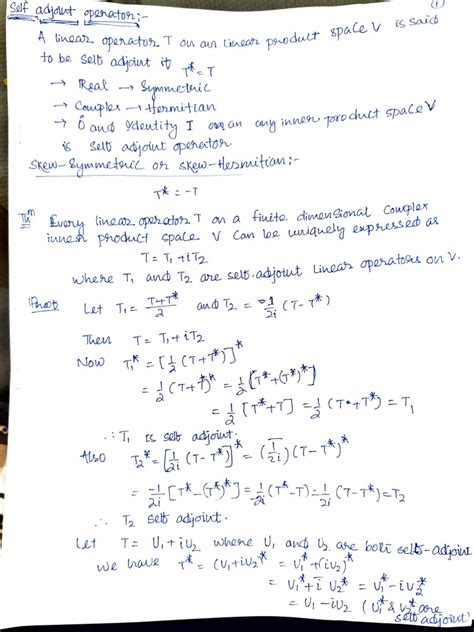 (1)
Self adjoint operator:-
A linear operator T on an linear product space V is said
to be self adjoint it T* = T
→ Real → Symmetric
→ Complex → Hermitian
→ Ô and Identity I on an any inner product space V
is self adjoint operator
Skew-Symmetric or skew-Hermitian:-
T* = -T
Thm Every linear operator T on a finite dimensional Complex
inner product space V can be uniquely expressed as
T = T1 + iT2
where T1 and T2 are self-adjoint linear operators on V.
Proof Let T1 = T+T*/2 and T2 = 1/2i (T - T*)
Then T = T1 + iT2
Now T1* = [1/2 (T + T*)]*
= 1/2 (T + T*)* = 1/2 [T* + (T*)*]
= 1/2 [T* + T] = 1/2 (T + T*) = T1
∴ T1 is self adjoint.
Also T2* = [1/2i (T - T*)]* = (1/2i) (T - T*)*
= -1/2i [T* - (T*)*] = -1/2i (T* - T) = 1/2i (T - T*) = T2
∴ T2 self adjoint.
Let T = U1 + iU2 where U1 and U2 are both self-adjoint
we have T* = (U1 + iU2)* = U1* + (iU2)*
= U1* + i̅ U2* = U1* - iU2*
= U1 - iU2 (U1* & U2* are
self adjoint)